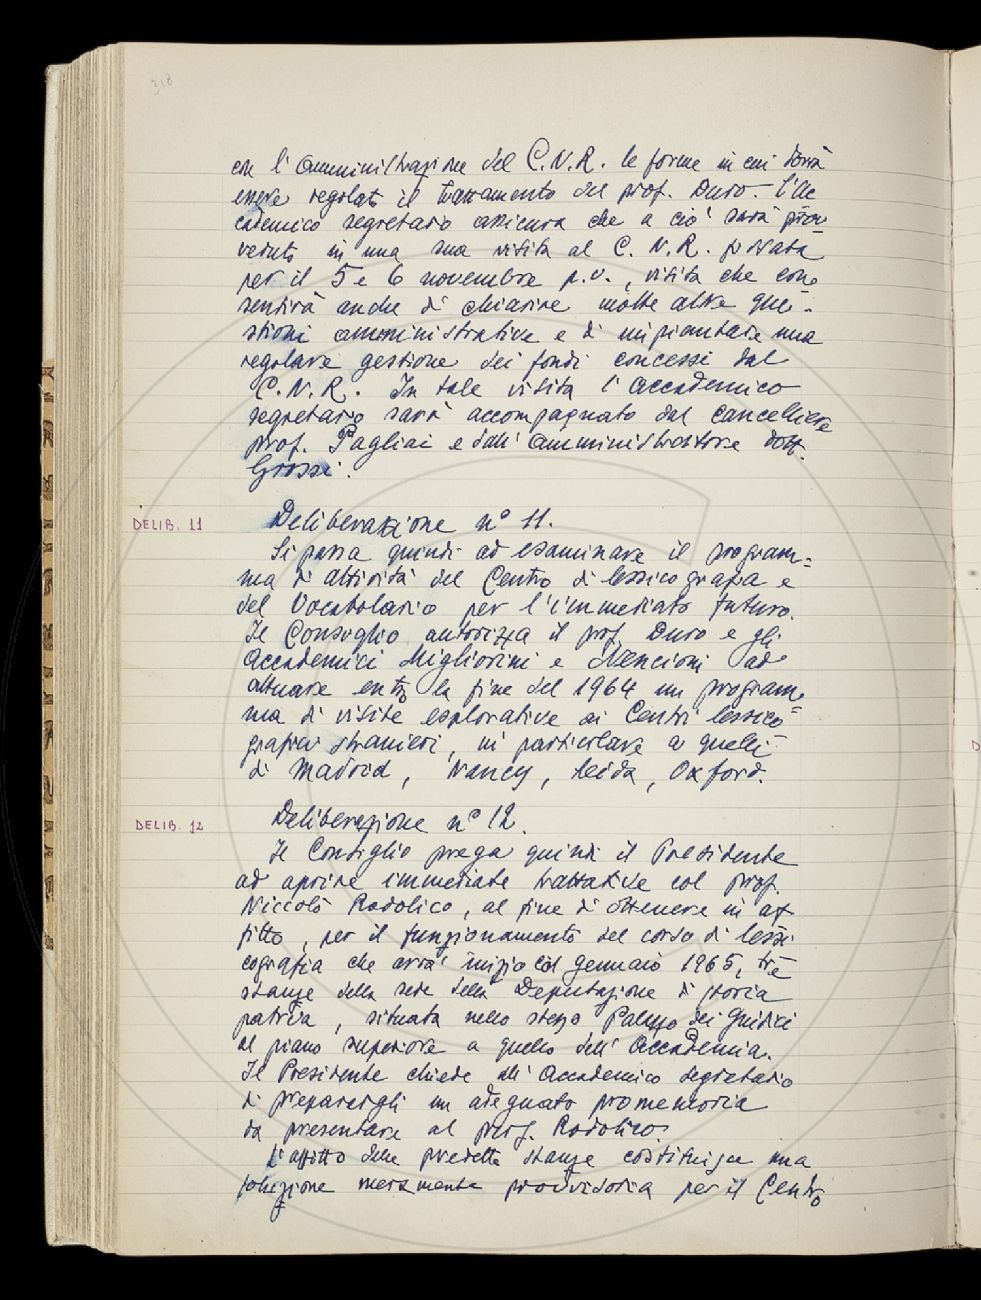 318
con l'amministrazione del C.N.R. le forme in cui dovrà
essere regolato il trattamento del prof. Duro. L'Ac
cademico segretario assicura che a ciò sarà prov=
veduto in una sua visita al C. N. R. fissata
per il 5 e 6 novembre p.v., visita che con=
sentirà anche di chiarire molte altre que=
stioni amministrative e di impiantare una
regolare gestione dei fondi concessi dal
C.N.R. In tale visita l'Accademico
segretario sarà accompagnato dal cancelliere
prof. Pagliai e dall'amministratore dott.
Grossi.
DELIB. 11
Deliberazione n° 11.
Si passa quindi ad esaminare il program=
ma di attività del Centro di lessicografia e
del Vocabolario per l'immediato futuro.
Il Consiglio autorizza il prof. Duro e gli
Accademici Migliorini e Nencioni ad
attuare entro la fine del 1964 un program=
ma di visite esplorative ai Centri lessico=
grafici stranieri, in particolare a quelli
di Madrid, Nancy, Leida, Oxford.
DELIB. 12
Deliberazione n° 12.
Il Consiglio prega quindi il Presidente
ad aprire immediate trattative col prof.
Niccolò Rodolico, al fine di ottenere in af
fitto, per il funzionamento del corso di lessi
cografia che avrà inizio col gennaio 1965, tre
stanze della sede della Deputazione di storia
patria, situata nello stesso Palazzo dei Giudici
al piano superiore a quello dell'Accademia.
Il Presidente chiede all'Accademico segretario
di preparargli un adeguato promemoria
da presentare al prof. Rodolico.
L'affitto delle predette stanze costituisce una
soluzione meramente provvisoria per il Centro